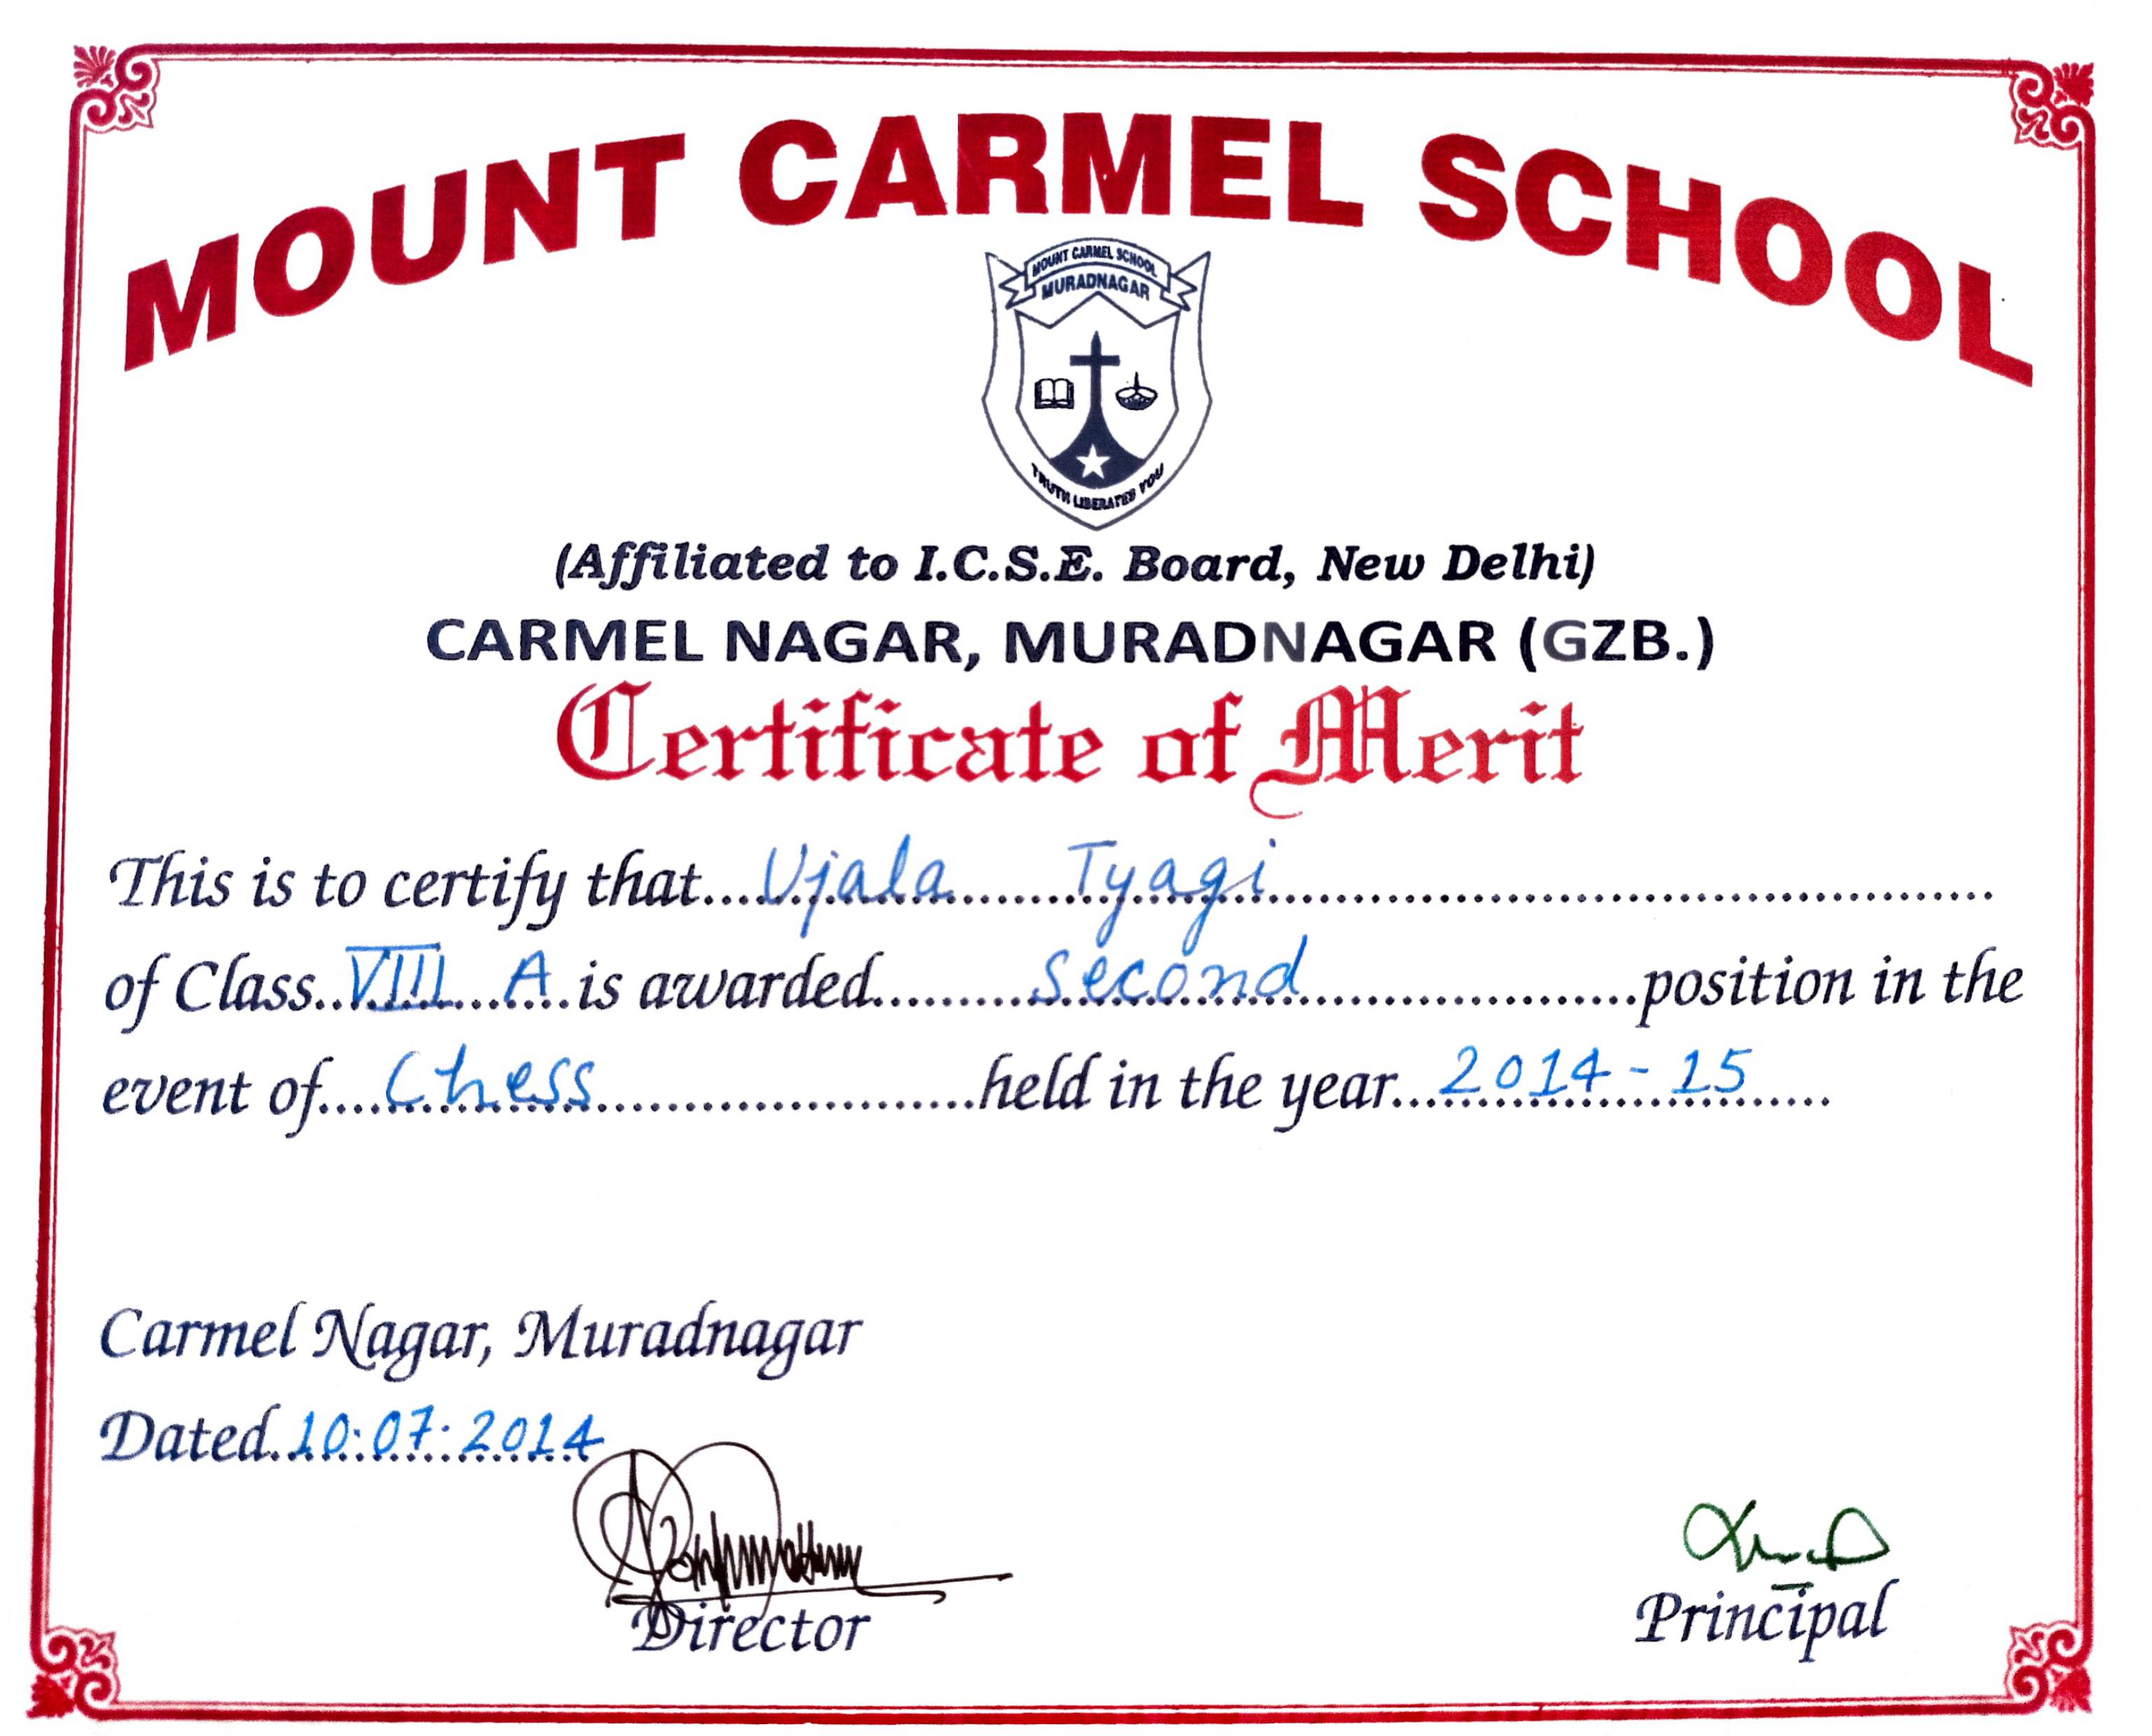 MOUNT CARMEL SCHOOL
MOUNT CARMEL SCHOOL
MURADNAGAR
TRUTH LIBERATES YOU
(Affiliated to I.C.S.E. Board, New Delhi)
CARMEL NAGAR, MURADNAGAR (GZB.)
Certificate of Merit
This is to certify that....Ujala Tyagi
of Class..VIII A..is awarded..........second..........position in the
event of....Chess..........held in the year..2014-15
Carmel Nagar, Muradnagar
Dated.10.07.2014
Director
Principal